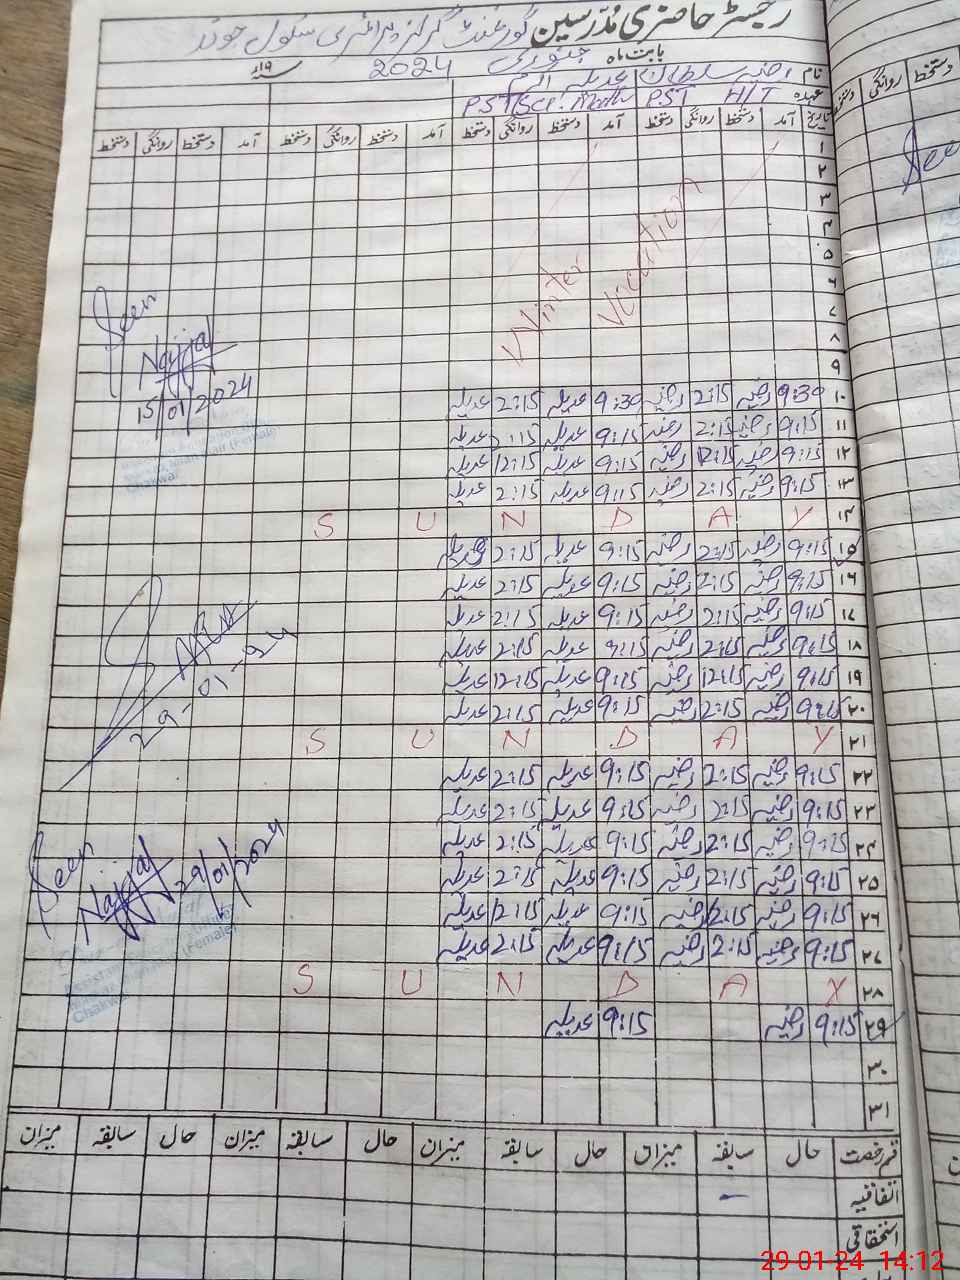 رجسٹر حاضری مدرسین گورنمنٹ گرلز پرائمری سکول جوند
بابت ماہ جنوری 2024 سنہ ۱۹ء
نام رضیہ سلطانہ عدیلہ
عہدہ PST H/T PST
تاریخ آمد دستخط روانگی دستخط آمد دستخط روانگی دستخط آمد دستخط روانگی دستخط آمد دستخط روانگی دستخط
۱
۲
۳
۴
۵
۶
۷
۸
۹
Winter Vacation
۱۰ 9:30 رضیہ 2:15 رضیہ 9:30 عدیلہ 2:15 عدیلہ
۱۱ 9:15 رضیہ 2:15 رضیہ 9:15 عدیلہ 2:15 عدیلہ
۱۲ 9:15 رضیہ 12:15 رضیہ 9:15 عدیلہ 12:15 عدیلہ
۱۳ 9:15 رضیہ 2:15 رضیہ 9:15 عدیلہ 2:15 عدیلہ
۱۴ S U N D A Y
۱۵ 9:15 رضیہ 2:15 رضیہ 9:15 عدیلہ 2:15 عدیلہ
۱۶ 9:15 رضیہ 2:15 رضیہ 9:15 عدیلہ 2:15 عدیلہ
۱۷ 9:15 رضیہ 2:15 رضیہ 9:15 عدیلہ 2:15 عدیلہ
۱۸ 9:15 رضیہ 2:15 رضیہ 9:15 عدیلہ 2:15 عدیلہ
۱۹ 9:15 رضیہ 12:15 رضیہ 9:15 عدیلہ 12:15 عدیلہ
۲۰ 9:15 رضیہ 2:15 رضیہ 9:15 عدیلہ 2:15 عدیلہ
۲۱ S U N D A Y
۲۲ 9:15 رضیہ 2:15 رضیہ 9:15 عدیلہ 2:15 عدیلہ
۲۳ 9:15 رضیہ 2:15 رضیہ 9:15 عدیلہ 2:15 عدیلہ
۲۴ 9:15 رضیہ 2:15 رضیہ 9:15 عدیلہ 2:15 عدیلہ
۲۵ 9:15 رضیہ 2:15 رضیہ 9:15 عدیلہ 2:15 عدیلہ
۲۶ 9:15 رضیہ 12:15 رضیہ 9:15 عدیلہ 12:15 عدیلہ
۲۷ 9:15 رضیہ 2:15 رضیہ 9:15 عدیلہ 2:15 عدیلہ
۲۸ S U N D A Y
۲۹ 9:15 رضیہ 9:15 عدیلہ
۳۰
۳۱
Seen
15/01/2024
(Female)
Chakwal
29-01-24
Seen
29/01/2024
Assistant
(Female)
Chakwal
قسم رخصت حال سابقہ میزان حال سابقہ میزان حال سابقہ میزان حال سابقہ میزان
اتفاقیہ -
استحقاقی
دستخط روانگی دستخط
See
29-01-24 14:12